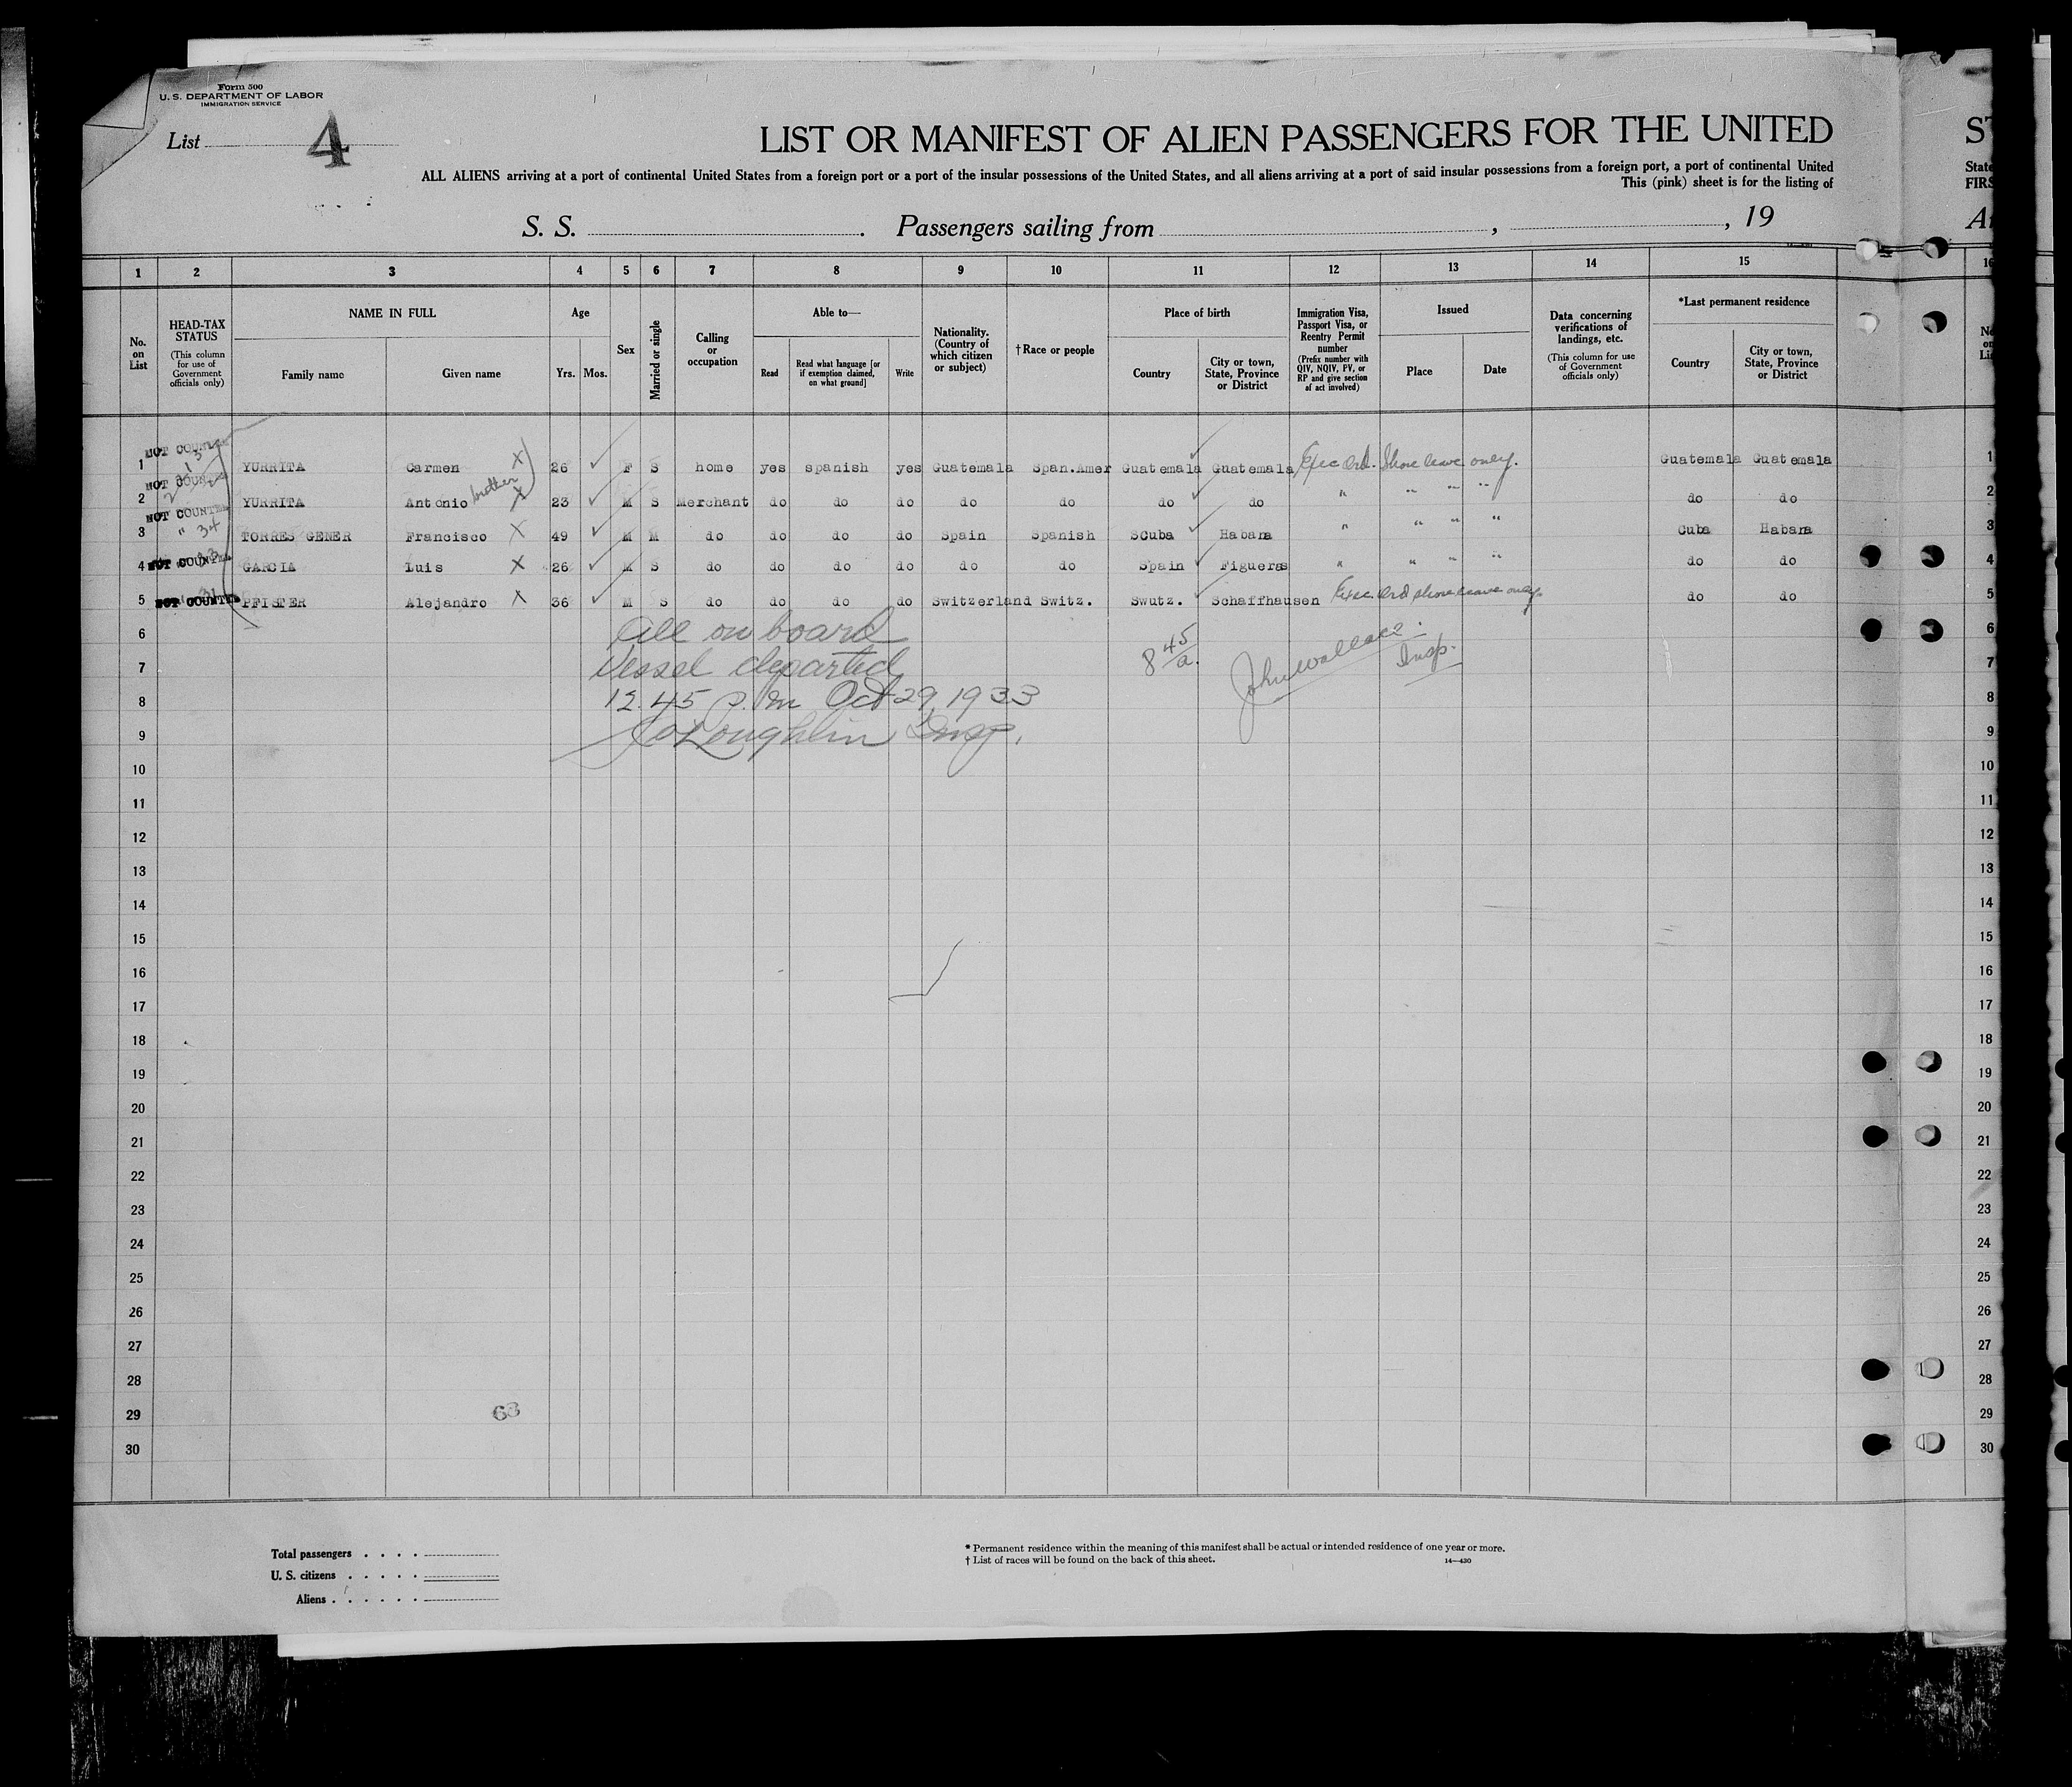 Form 500
U. S. DEPARTMENT OF LABOR
IMMIGRATION SERVICE
List 4
LIST OR MANIFEST OF ALIEN PASSENGERS FOR THE UNITED
ALL ALIENS arriving at a port of continental United States from a foreign port or a port of the insular possessions of the United States, and all aliens arriving at a port of said insular possessions from a foreign port, a port of continental United
This (pink) sheet is for the listing of
S. S. . Passengers sailing from , , 19
1 2 3 4 5 6 7 8 9 10 11 12 13 14 15
No. on List
HEAD-TAX STATUS (This column for use of Government officials only)
NAME IN FULL
Family name Given name
Age
Yrs. Mos.
Sex
Married or single
Calling or occupation
Able to—
Read
Read what language [or if exemption claimed, on what ground]
Write
Nationality. (Country of which citizen or subject)
†Race or people
Place of birth
Country
City or town, State, Province or District
Immigration Visa, Passport Visa, or Reentry Permit number (Prefix number with QIV, NQIV, PV, or RP and give section of act involved)
Issued
Place Date
Data concerning verifications of landings, etc. (This column for use of Government officials only)
*Last permanent residence
Country
City or town, State, Province or District
1 NOT COUNTED YURRITA Carmen X 26 ✓ F S home yes spanish yes Guatemala Span.Amer Guatemala Guatemala Exec Ord. Shore leave only. Guatemala Guatemala 1
2 NOT COUNTED YURRITA Antonio brother X 23 ✓ M S Merchant do do do do do do do " " " " do do 2
3 NOT COUNTED " 34 TORRES GENER Francisco X 49 ✓ M M do do do do Spain Spanish SCuba Habana " " " " Cuba Habana 3
4 NOT COUNTED GARCIA Luis X 26 ✓ M S do do do do do do Spain Figueras " " " " do do 4
5 NOT COUNTED PFISTER Alejandro X 36 ✓ M S do do do do Switzerland Switz. Swutz. Schaffhausen Exec. Ord shore leave only. do do 5
6 All on board 6
7 Vessel departed 8 45/a. John Wallace. Insp. 7
8 12.45 P.M Oct 29, 1933 8
9 O'Loughlin Insp. 9
10 10
11 11
12 12
13 13
14 14
15 15
16 16
17 17
18 18
19 19
20 20
21 21
22 22
23 23
24 24
25 25
26 26
27 27
28 28
29 63 29
30 30
Total passengers . . . .
U. S. citizens . . . . .
Aliens . . . . . .
* Permanent residence within the meaning of this manifest shall be actual or intended residence of one year or more.
† List of races will be found on the back of this sheet. 14—430